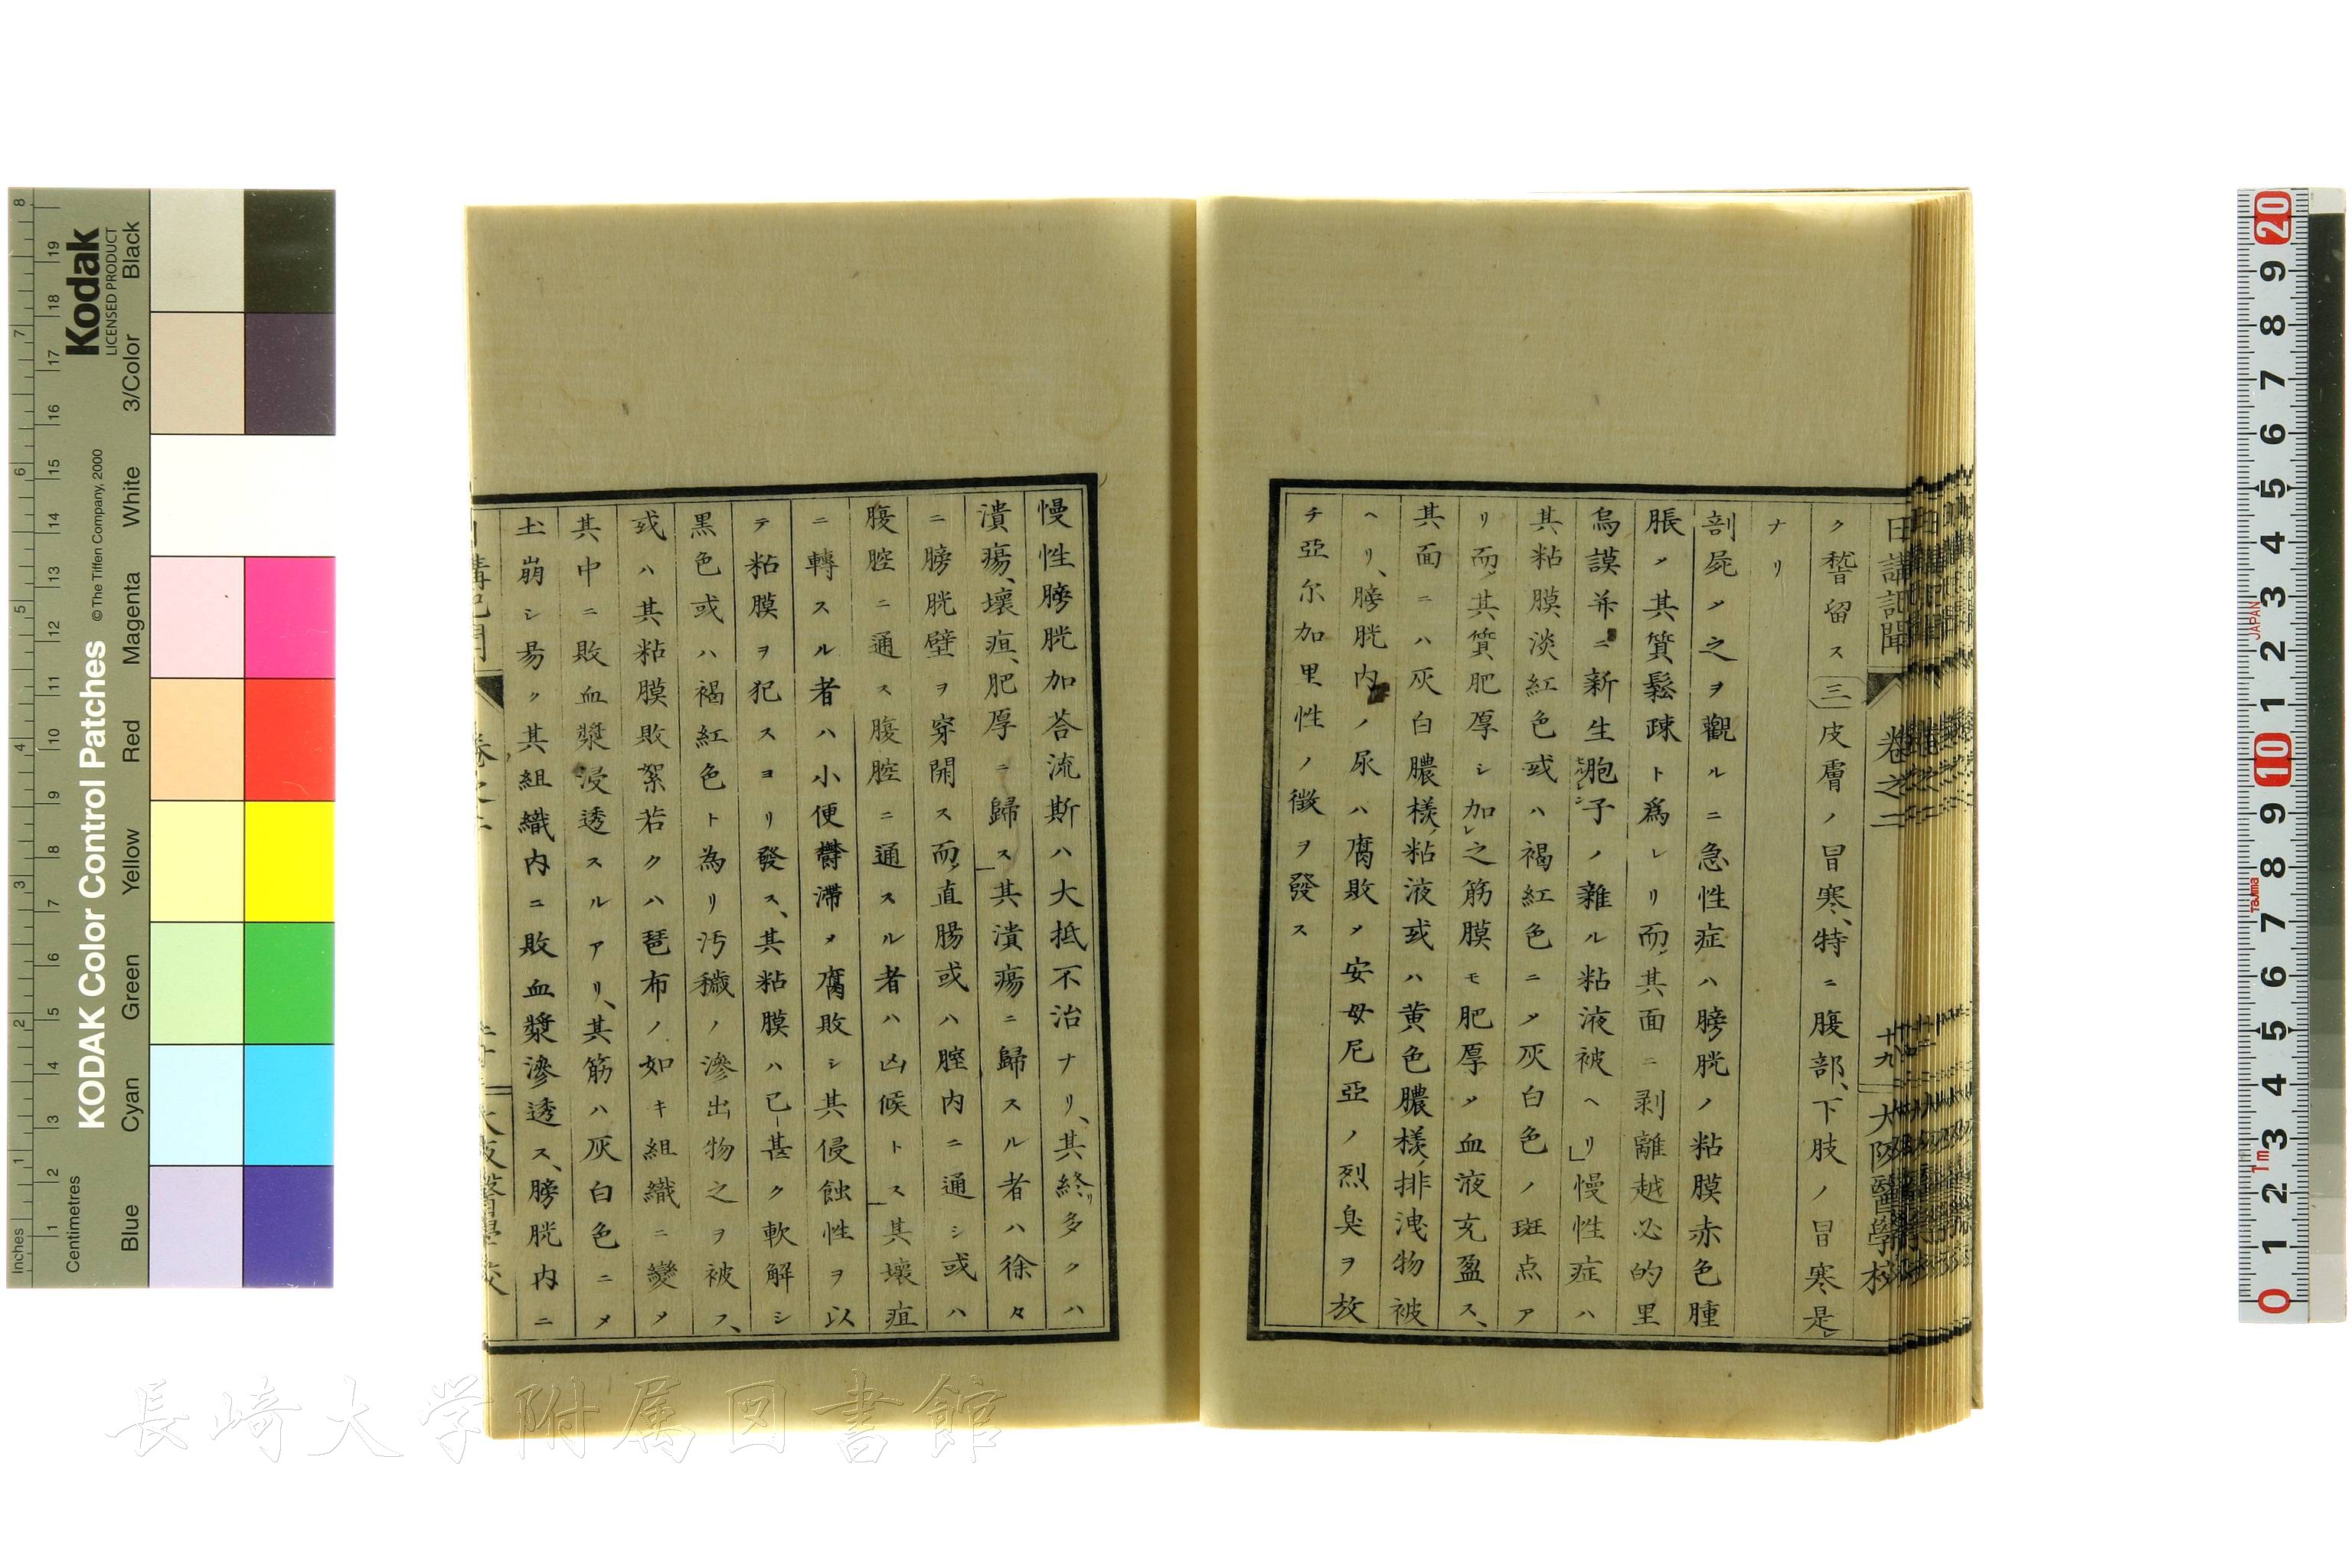 日講記聞 卷之二 十九 大阪醫學校
ク稽留ス㊂皮膚ノ冒寒、特ニ腹部、下肢ノ冒寒是
ナリ
剖屍〆之ヲ觀ルニ急性症ハ膀胱ノ粘膜赤色腫
脹〆其質鬆疎ト爲レリ而其面ニ剥離越必的里
烏謨并ニ新生胞子ノ雜ル粘液被ヘリ」慢性症ハ
其粘膜淡紅色或ハ褐紅色ニ〆灰白色ノ斑点ア
リ而其質肥厚シ加之筋膜モ肥厚〆血液充盈ス、
其面ニハ灰白膿樣粘液或ハ黄色膿樣排洩物被
ヘリ、膀胱内ノ尿ハ腐敗〆安母尼亞ノ烈臭ヲ放
チ亞尓加里性ノ徴ヲ發ス
慢性膀胱加荅流斯ハ大抵不治ナリ、其終リ多クハ
潰瘍、壞疽、肥厚ニ歸ス」其潰瘍ニ歸スル者ハ徐々
ニ膀胱壁ヲ穿開ス而直腸或ハ腟内ニ通シ或ハ
腹腔ニ通ス腹腔ニ通スル者ハ凶候トス」其壞疽
ニ轉スル者ハ小便欝滯〆腐敗シ其侵蝕性ヲ以
テ粘膜ヲ犯スヨリ發ス、其粘膜ハ已ニ甚ク軟解シ
黒色或ハ褐紅色ト為リ汚穢ノ滲出物之ヲ被フ、
或ハ其粘膜敗絮若クハ琶布ノ如キ組織ニ變〆
其中ニ敗血漿浸透スルアリ、其筋ハ灰白色ニ〆
土崩シ易ク其組織内ニ敗血漿滲透ス、膀胱内ニ
Kodak
LICENSED PRODUCT
KODAK Color Control Patches
© The Tiffen Company, 2000
Inches
Centimetres
Blue Cyan Green Yellow Red Magenta White 3/Color Black
1 2 3 4 5 6 7 8
1 2 3 4 5 6 7 8 9 10 11 12 13 14 15 16 17 18 19
20 9 8 7 6 5 4 3 2 1 10 9 8 7 6 5 4 3 2 1 0
JAPAN
Tajima
1m
長崎大学附属図書館